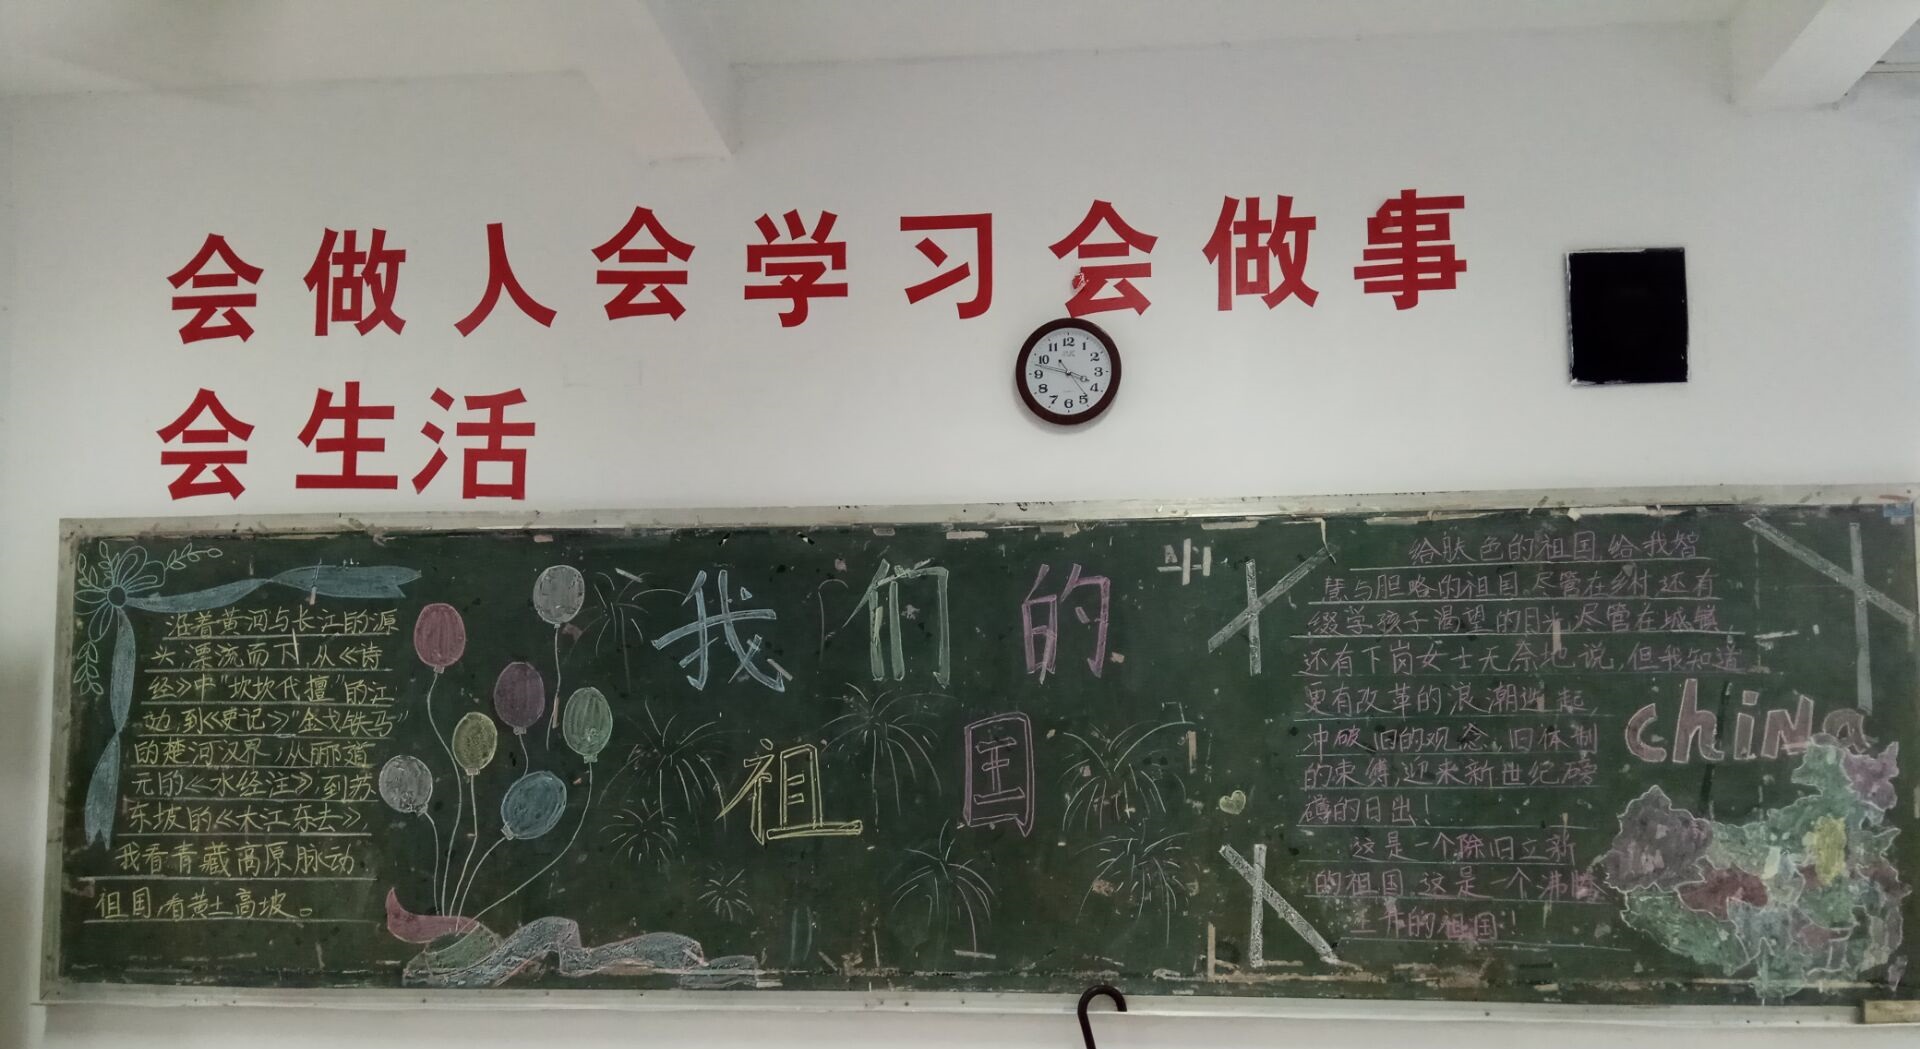 会做人会学习会做事
会生活
12
1
2
3
4
5
6
7
8
9
10
11
沿着黄河与长江的源
头,漂流而下,从《诗
经》中"坎坎伐擅"的江
边,到《史记》"金戈铁马"
的楚河汉界,从郦道
元的《水经注》,到苏
东坡的《大江东去》
我看青藏高原脉动
祖国,看黄土高坡。
我们的
祖国
给肤色的祖国,给我智
慧与胆略的祖国.尽管在乡村,还有
缀学孩子渴望的目光,尽管在城镇,
还有下岗女士无奈地说,但我知道
更有改革的浪潮迭起,
冲破旧的观念,旧体制
的束缚,迎来新世纪磅
礴的日出!
这是一个除旧立新
的祖国,这是一个沸腾
的祖国!
chiNa